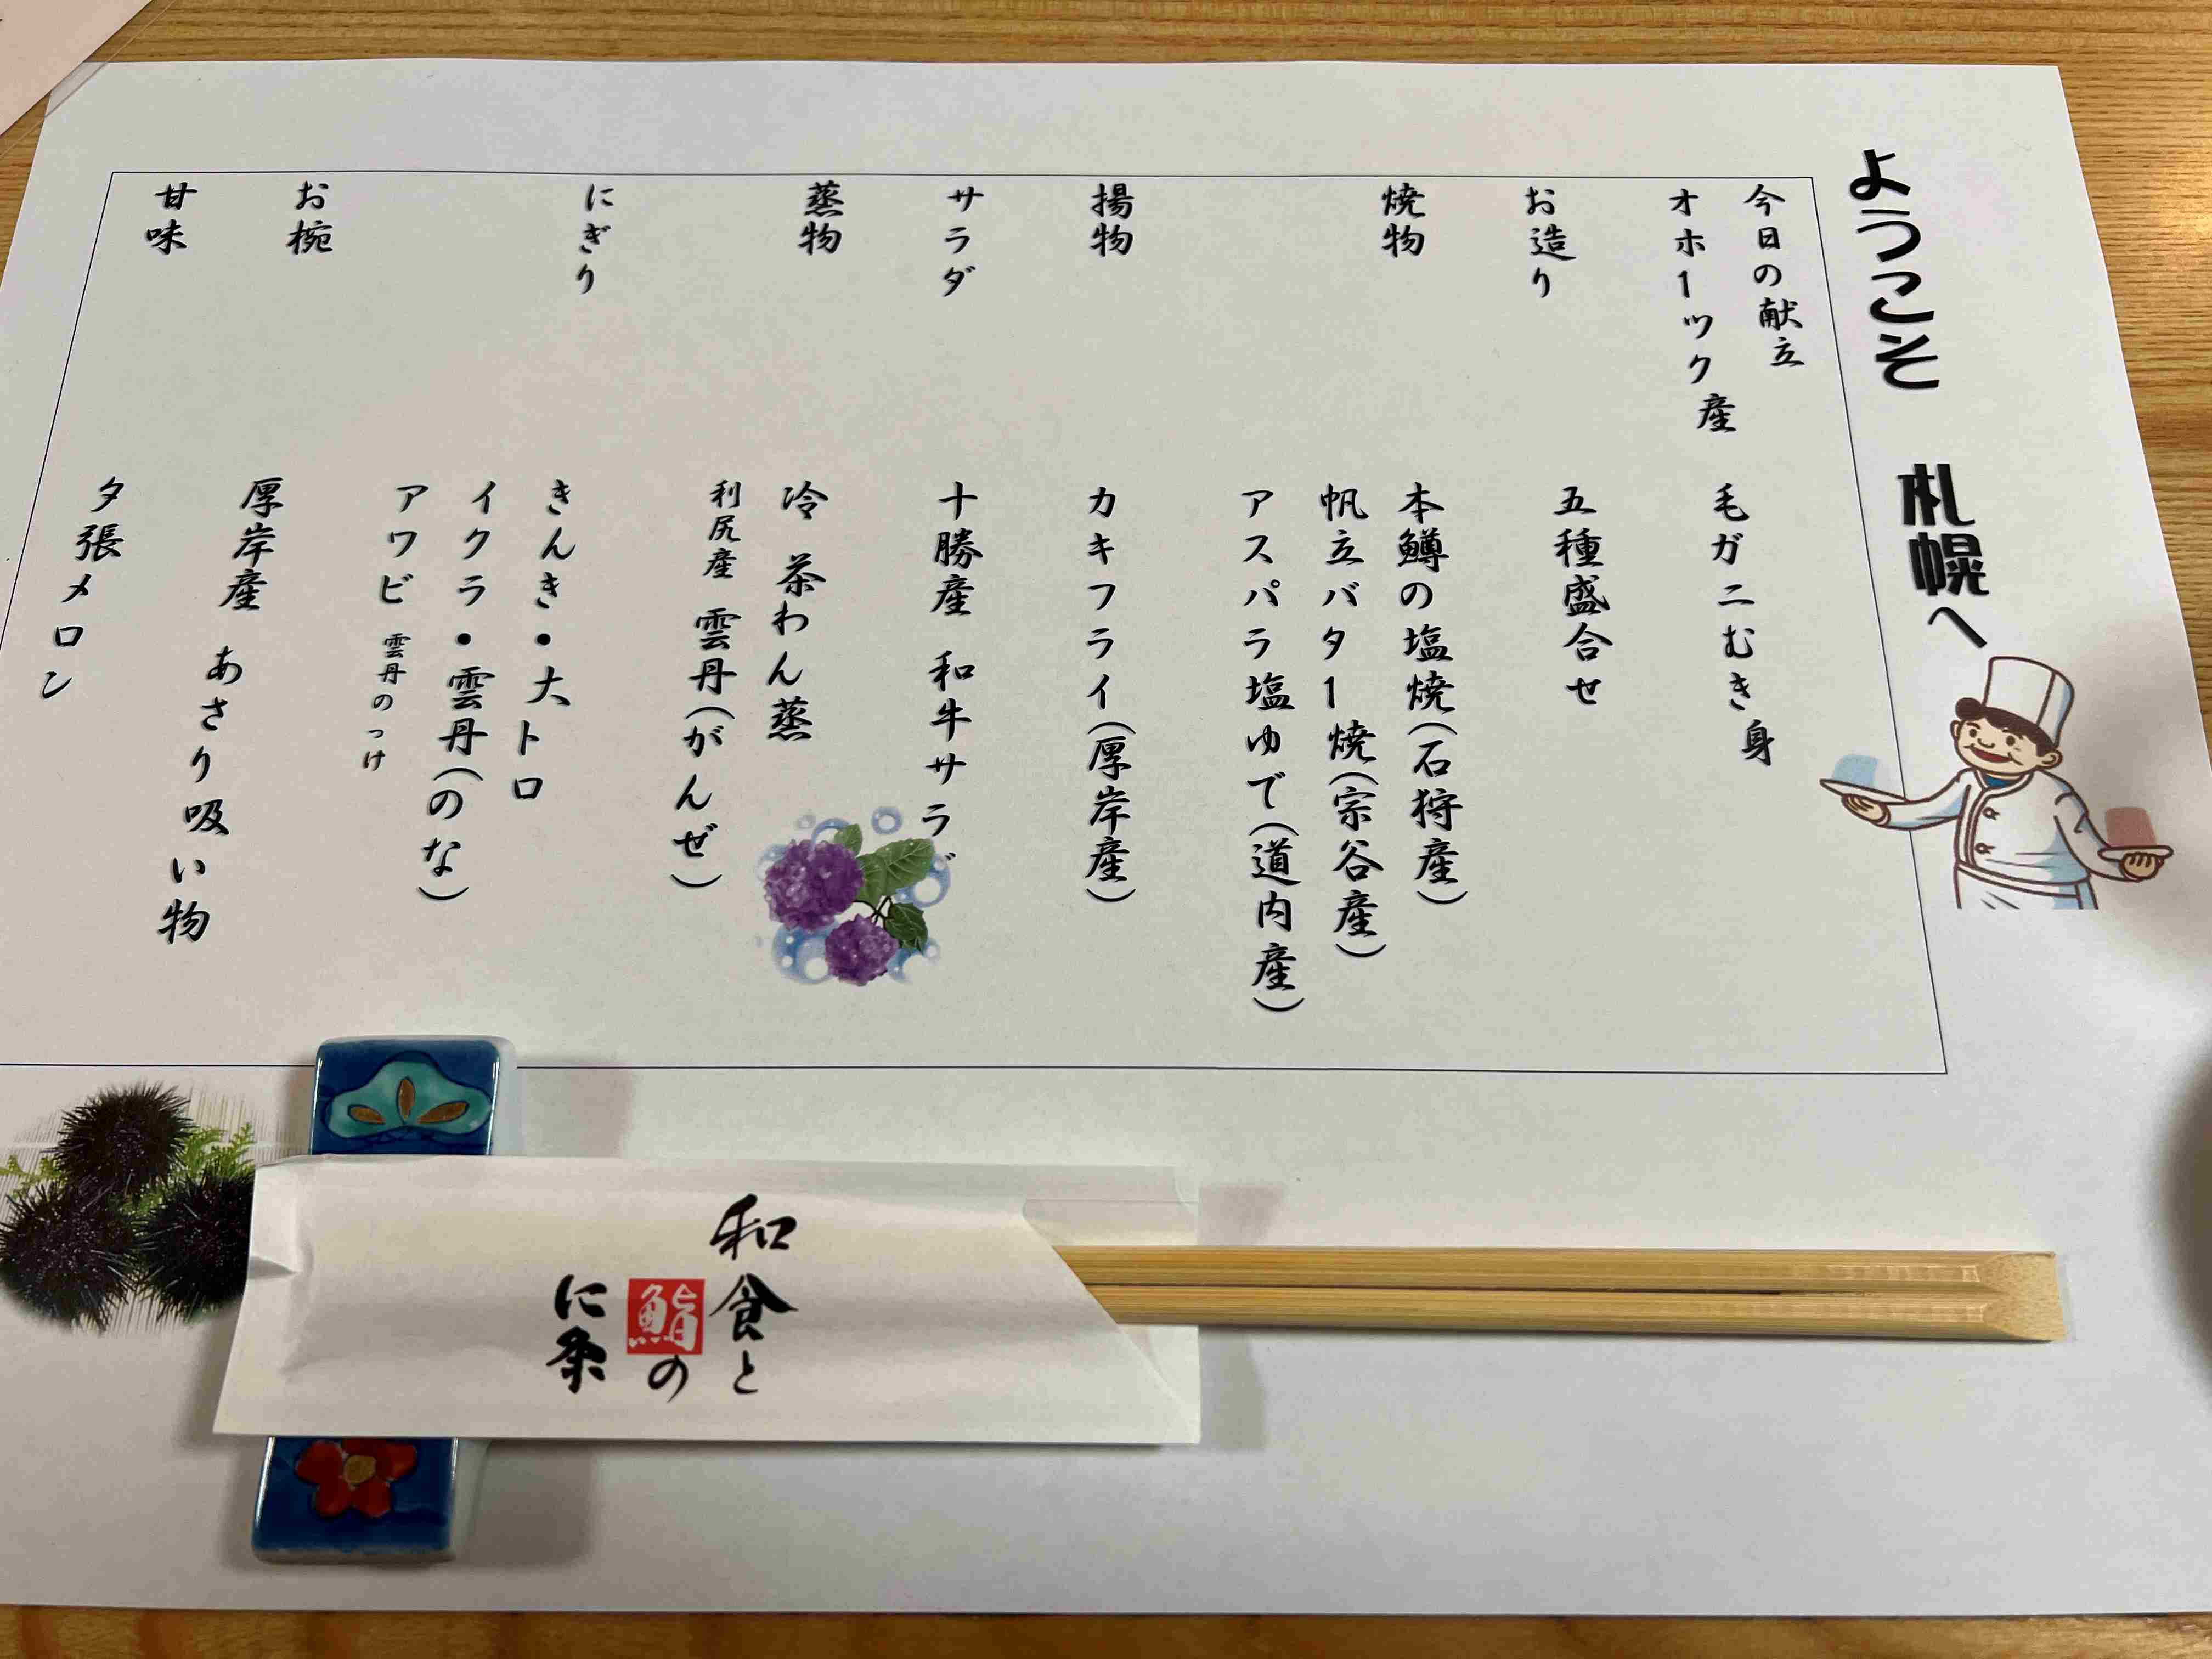 ようこそ 札幌へ
今日の献立
オホーツク産 毛ガニむき身
お造り 五種盛合せ
焼物 本鱒の塩焼(石狩産)
帆立バター焼(宗谷産)
アスパラ塩ゆで(道内産)
揚物 カキフライ(厚岸産)
サラダ 十勝産 和牛サラダ
蒸物 冷 茶わん蒸
利尻産 雲丹(がんぜ)
にぎり きんき・大トロ
イクラ・雲丹(のな)
アワビ 雲丹のっけ
お椀 厚岸産 あさり吸い物
甘味 夕張メロン
和食と
鮨の
に条